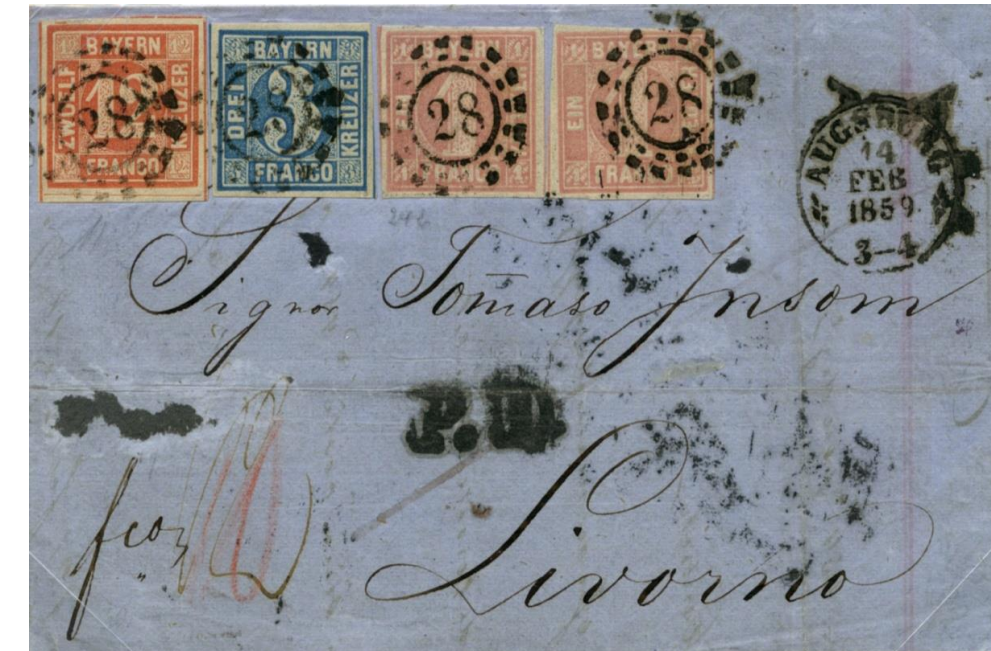 BAYERN
ZWÖLF 12 KREUZER
FRANCO
28
BAYERN
DREI 3 KREUZER
FRANCO
28
BAYERN
1
FRANCO
28
BAYERN
EIN
FRANCO
28
AUGSBURG
14
FEB
1859
3-4
242
Signor Tom̄aso Insom
P.D.
fco
Livorno